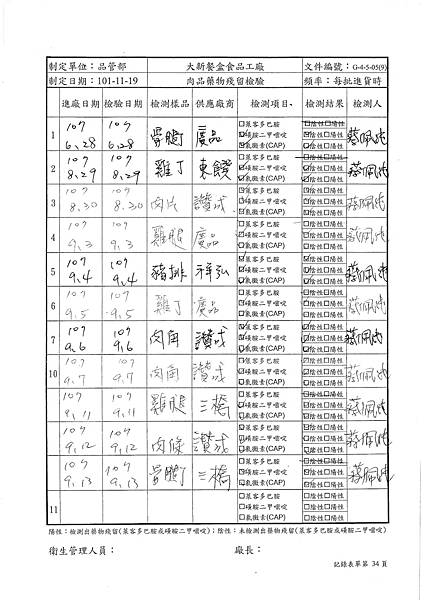 制定單位：品管部 大新餐盒食品工廠 文件編號：G-4-5-05(9)
制定日期：101-11-19 肉品藥物殘留檢驗 頻率：每批進貨時
進廠日期 檢驗日期 檢測樣品 供應廠商 檢測項目、 檢測結果 檢測人
萊客多巴胺 陰性 陽性
1 107 6.28 107 6.28 骨腿丁 廣品 磺胺二甲嘧啶 陰性 陽性 蔡佩
氯黴素(CAP) 陰性 陽性
萊客多巴胺 陰性 陽性
2 107 8.29 107 8.29 雞丁 東饌 磺胺二甲嘧啶 陰性 陽性 蔡佩
氯黴素(CAP) 陰性 陽性
萊客多巴胺 陰性 陽性
3 107 8.30 107 8.30 肉片 讚成 磺胺二甲嘧啶 陰性 陽性 蔡佩
氯黴素(CAP) 陰性 陽性
萊客多巴胺 陰性 陽性
4 107 9.3 107 9.3 雞腿 廣品 磺胺二甲嘧啶 陰性 陽性 蔡佩
氯黴素(CAP) 陰性 陽性
萊客多巴胺 陰性 陽性
5 107 9.4 107 9.4 豬排 祥弘 磺胺二甲嘧啶 陰性 陽性 蔡佩
氯黴素(CAP) 陰性 陽性
萊客多巴胺 陰性 陽性
6 107 9.5 107 9.5 雞丁 廣品 磺胺二甲嘧啶 陰性 陽性 蔡佩
氯黴素(CAP) 陰性 陽性
萊客多巴胺 陰性 陽性
7 107 9.6 107 9.6 肉角 讚成 磺胺二甲嘧啶 陰性 陽性 蔡佩
氯黴素(CAP) 陰性 陽性
萊客多巴胺 陰性 陽性
10 107 9.7 107 9.7 肉角 讚成 磺胺二甲嘧啶 陰性 陽性 蔡佩
氯黴素(CAP) 陰性 陽性
萊客多巴胺 陰性 陽性
107 9.11 107 9.11 雞腿 三橋 磺胺二甲嘧啶 陰性 陽性 蔡佩
氯黴素(CAP) 陰性 陽性
萊客多巴胺 陰性 陽性
107 9.12 107 9.12 肉條 讚成 磺胺二甲嘧啶 陰性 陽性 蔡佩
氯黴素(CAP) 陰性 陽性
萊客多巴胺 陰性 陽性
107 9.13 107 9.13 骨腿丁 三橋 磺胺二甲嘧啶 陰性 陽性 蔡佩
氯黴素(CAP) 陰性 陽性
萊客多巴胺 陰性 陽性
11 磺胺二甲嘧啶 陰性 陽性
氯黴素(CAP) 陰性 陽性
陽性：檢測出藥物殘留(萊客多巴胺或磺胺二甲嘧啶)；陰性：未檢測出藥物殘留(萊客多巴胺或磺胺二甲嘧啶)
衛生管理人員： 廠長：
記錄表單第 34 頁